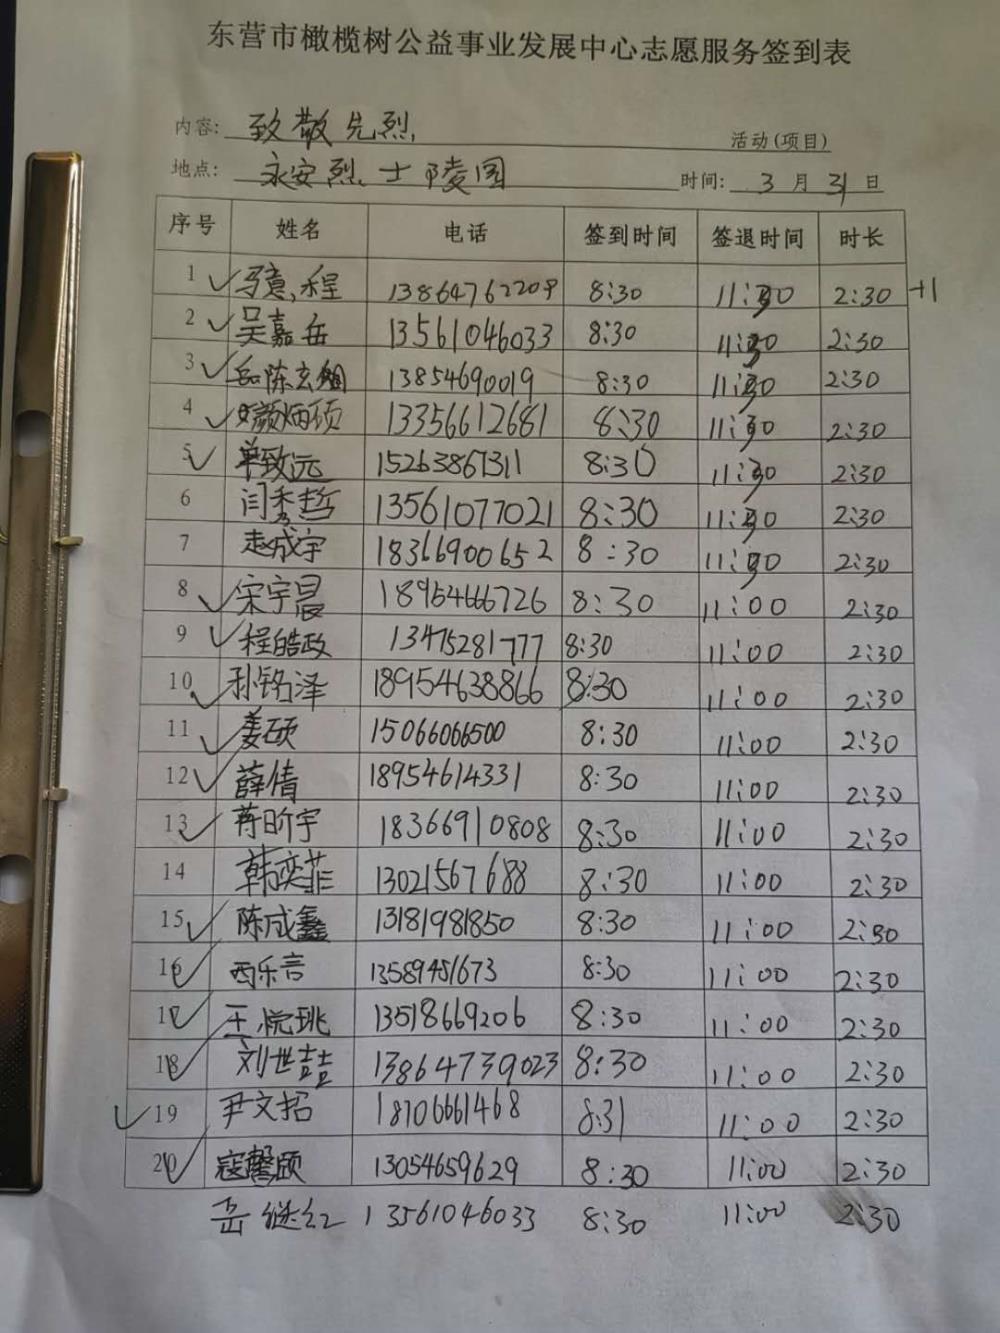 东营市橄榄树公益事业发展中心志愿服务签到表
内容: 致敬先烈 活动(项目)
地点: 永安烈士陵园 时间: 3 月 31 日
序号 姓名 电话 签到时间 签退时间 时长
1 程 13864762209 8:30 2:30 +1
2 吴嘉岳 13561046033 8:30 2:30
3 13854690019 8:30 2:30
4 颜炳硕 13356612681 8:30 2:30
5 单致远 15263867311 8:30 2:30
6 闫秀哲 13561077021 8:30 2:30
7 赵成宇 18366900652 8:30 2:30
8 宋宇晨 18954666726 8:30 11:00 2:30
9 程皓政 13475281777 8:30 11:00 2:30
10 孙铭泽 18954638866 8:30 11:00 2:30
11 姜硕 15066066500 8:30 11:00 2:30
12 薛倩 18954614331 8:30 11:00 2:30
13 蒋昕宇 18366910808 8:30 11:00 2:30
14 韩奕菲 13021567688 8:30 11:00 2:30
15 陈成鑫 13181981850 8:30 11:00 2:30
16 西乐言 13589451673 8:30 11:00 2:30
17 王悦珧 13518669206 8:30 11:00 2:30
18 刘世喆 13864739023 8:30 11:00 2:30
19 尹文招 18706661468 8:31 11:00 2:30
20 寇馨颐 13054659629 8:30 11:00 2:30
岳继红 13561046033 8:30 11:00 2:30